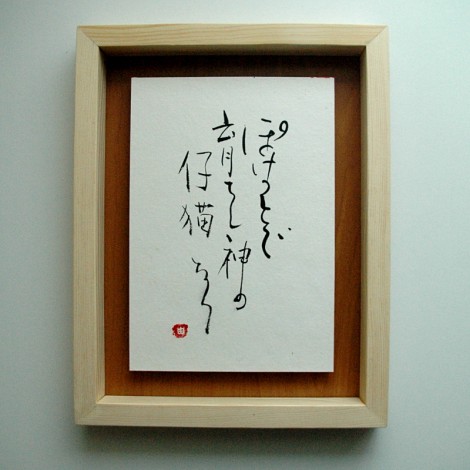 ぽけっとで
育てし神の
仔猫なく